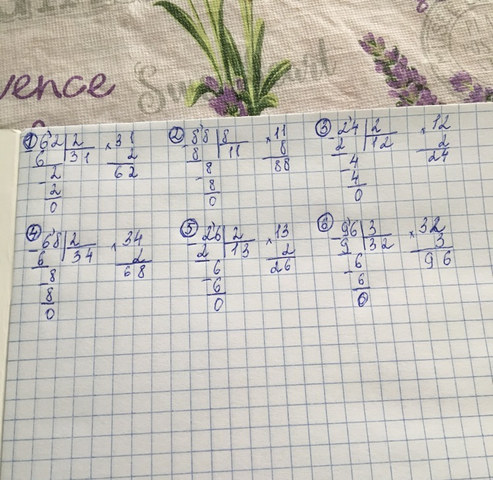 vence
Sweet art
① 62 | 2 × 31
6 31 2
- 2 62
2
0
② 88 | 8 × 11
8 11 8
- 8 88
8
0
③ 24 | 2 × 12
2 12 2
- 4 24
4
0
④ 68 | 2 × 34
6 34 2
- 8 68
8
0
⑤ 26 | 2 × 13
2 13 2
- 6 26
6
0
⑥ 96 | 3 × 32
9 32 3
- 6 96
6
0